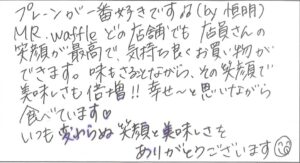 プレーンが一番好きですね(by 恒明)
MR.waffle どの店舗でも 店員さんの
笑顔が最高で、気持ち良くお買い物が
できます。味もさることながら、その笑顔で
美味しさも倍増!! 幸せ〜と思いながら
食べています♡
いつも変わらぬ笑顔と美味しさを
ありがとうございます